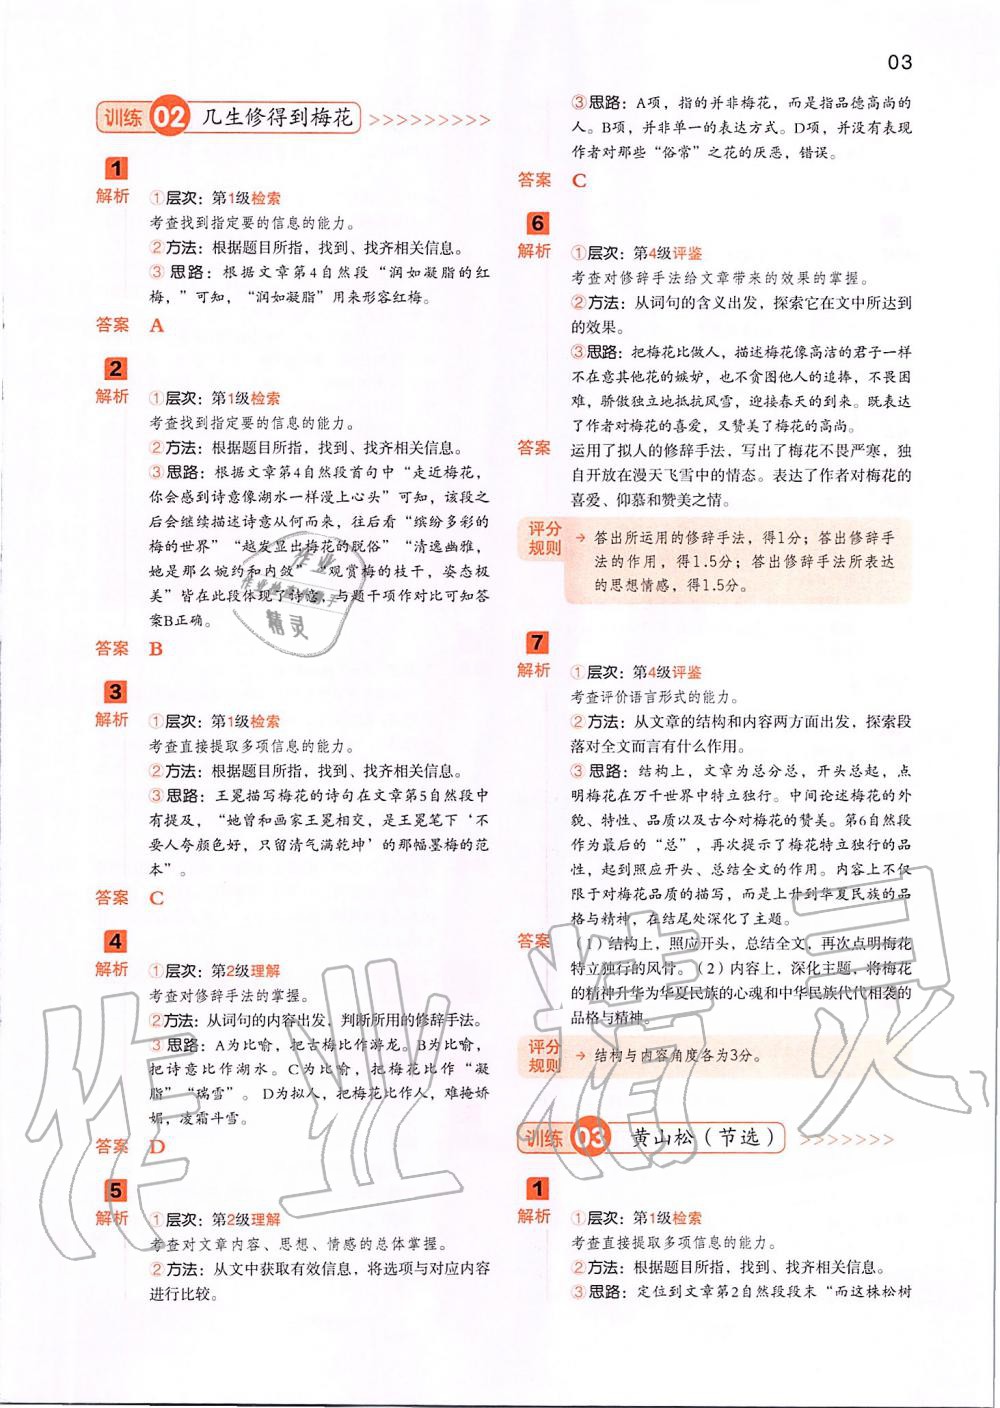 03
训练 02 几生修得到梅花 >>>>>>>>>>
1
解析 ①层次：第1级检索
考查找到指定要的信息的能力。
②方法：根据题目所指，找到、找齐相关信息。
③思路：根据文章第4自然段“润如凝脂的红
梅，”可知，“润如凝脂”用来形容红梅。
答案 A
2
解析 ①层次：第1级检索
考查找到指定要的信息的能力。
②方法：根据题目所指，找到、找齐相关信息。
③思路：根据文章第4自然段首句中“走近梅花，
你会感到诗意像湖水一样漫上心头”可知，该段之
后会继续描述诗意从何而来，往后看“缤纷多彩的
梅的世界”“越发显出梅花的脱俗”“清逸幽雅，
她是那么婉约和内敛”“观赏梅的枝干，姿态极
美”皆在此段体现了诗意，与题干项作对比可知答
案B正确。
答案 B
3
解析 ①层次：第1级检索
考查直接提取多项信息的能力。
②方法：根据题目所指，找到、找齐相关信息。
③思路：王冕描写梅花的诗句在文章第5自然段中
有提及，“她曾和画家王冕相交，是王冕笔下‘不
要人夸颜色好，只留清气满乾坤’的那幅墨梅的范
本”。
答案 C
4
解析 ①层次：第2级理解
考查对修辞手法的掌握。
②方法：从词句的内容出发，判断所用的修辞手法。
③思路：A为比喻，把古梅比作游龙。B为比喻，
把诗意比作湖水。C为比喻，把梅花比作“凝
脂”“瑞雪”。D为拟人，把梅花比作人，难掩娇
媚，凌霜斗雪。
答案 D
5
解析 ①层次：第2级理解
考查对文章内容、思想、情感的总体掌握。
②方法：从文中获取有效信息，将选项与对应内容
进行比较。
③思路：A项，指的并非梅花，而是指品德高尚的
人。B项，并非单一的表达方式。D项，并没有表现
作者对那些“俗常”之花的厌恶，错误。
答案 C
6
解析 ①层次：第4级评鉴
考查对修辞手法给文章带来的效果的掌握。
②方法：从词句的含义出发，探索它在文中所达到
的效果。
③思路：把梅花比做人，描述梅花像高洁的君子一样
不在意其他花的嫉妒，也不贪图他人的追捧，不畏困
难，骄傲独立地抵抗风雪，迎接春天的到来。既表达
了作者对梅花的喜爱，又赞美了梅花的高尚。
答案 运用了拟人的修辞手法，写出了梅花不畏严寒，独
自开放在漫天飞雪中的情态。表达了作者对梅花的
喜爱、仰慕和赞美之情。
评分规则 → 答出所运用的修辞手法，得1分；答出修辞手
法的作用，得1.5分；答出修辞手法所表达
的思想情感，得1.5分。
7
解析 ①层次：第4级评鉴
考查评价语言形式的能力。
②方法：从文章的结构和内容两方面出发，探索段
落对全文而言有什么作用。
③思路：结构上，文章为总分总，开头总起，点
明梅花在万千世界中特立独行。中间论述梅花的外
貌、特性、品质以及古今对梅花的赞美。第6自然段
作为最后的“总”，再次提示了梅花特立独行的品
性，起到照应开头、总结全文的作用。内容上不仅
限于对梅花品质的描写，而是上升到华夏民族的品
格与精神，在结尾处深化了主题。
答案 （1）结构上，照应开头，总结全文，再次点明梅花
特立独行的风骨。（2）内容上，深化主题，将梅花
的精神升华为华夏民族的心魂和中华民族代代相袭的
品格与精神。
评分规则 → 结构与内容角度各为3分。
训练 03 黄山松（节选） >>>>>>>>
1
解析 ①层次：第1级检索
考查直接提取多项信息的能力。
②方法：根据题目所指，找到、找齐相关信息。
③思路：定位到文章第2自然段段末“而这株松树
作业精灵